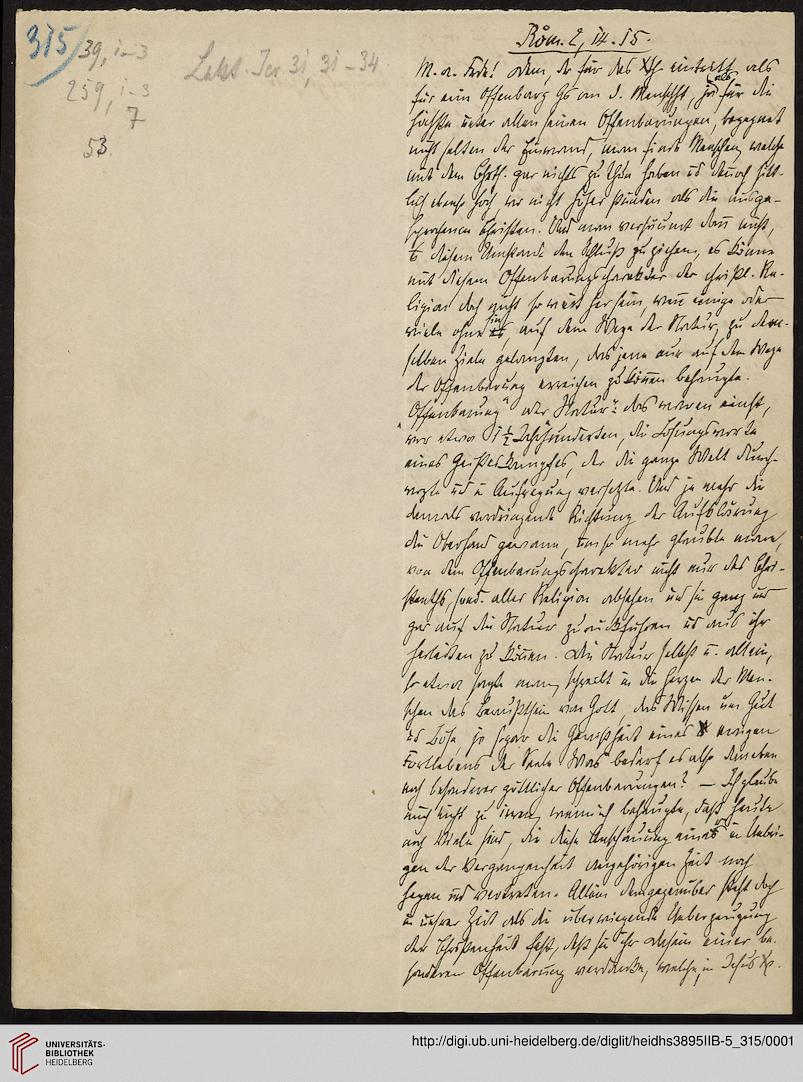 315
39, 1-3
259, 1-3
7
53.
Lekt. Jer. 31, 31-34
Röm. 2, 14. 15.
M. a. Frde! Dem, der für das Xth. eintritt als
für eine Offenbarg Gs an d. Menschht, ja als für die
höchste unter allen seinen Offenbarungen, begegnet
nicht selten der Einwand, man finde Menschen, welche
mit dem Chrth. gar nichts zu thun haben ud dennoch sitt-
lich ebenso hoch wo nicht höher stünden als die ausge-
sprochenen Christen. Und man versäumt dann nicht,
diesem Umstande den Schluß zu ziehen, es könne
mit diesem Offenbarungscharakter der christl. Re-
ligion doch nicht so weit her sein, wenn einige oder
viele ohne sie, auf dem Wege der Natur, zu dem-
selben Ziele gelangten, das jene nur auf dem Wege
der Offenbarung erreichen zu können behaupte.
„Offenbarung" oder „Natur": das waren einst,
vor etwa 1½ Jahrhunderten, die Losungsworte
eines Geisteskampfes, der die ganze Welt durch-
ud in Aufregung versetzte. Und je mehr die
damals vordringende Richtung der Aufklärung
die Oberhand gewann, um so mehr glaubte man,
von dem Offenbarungscharakter nicht nur des Chri-
stenths, sond. aller Religion absehen und sie ganz und
gar auf die Natur zurückführen ud aus ihr
herleiten zu können. Die Natur selbst u. allein,
so etwa sagte man, schreibt in die Herzen der Men-
schen das Bewußtsein von Gott, das Wissen um Gut
ud Böse, ja sogar die Gewißheit eines ewigen
Fortlebens der Seele. Was bedarf es also daneben
noch besonderer göttlicher Offenbarungen? — Ich glaube
auch nicht zu irren, wenn ich behaupte, daß heute
noch Viele sind, die diese Anschauung einer im Uebri-
gen der Vergangenheit angehörigen Zeit noch
hegen und vertreten. Allein demgegenüber steht doch
in unsrer Zeit als die überwiegende Ueberzeugung
der Christenheit fest, daß sie ihr Dasein einer be-
sonderen Offenbarung verdanke, welche in Jesus X.
UNIVERSITÄTS-
BIBLIOTHEK
HEIDELBERG
http://digi.ub.uni-heidelberg.de/diglit/heidhs3895IIB-5_315/0001